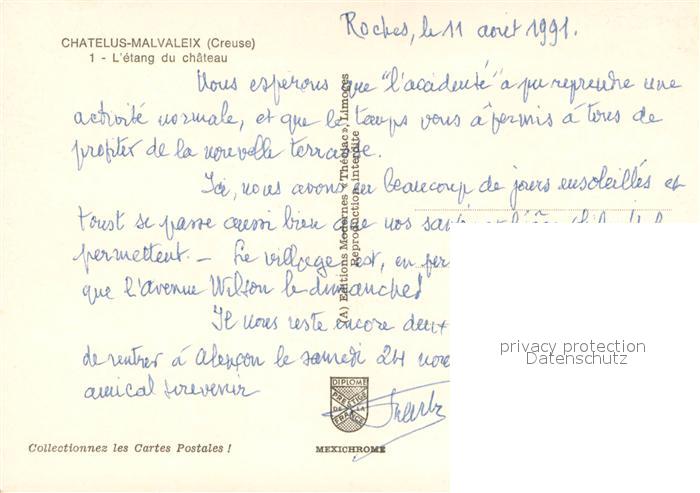 Roches, le 11 août 1991.
CHATELUS-MALVALEIX (Creuse)
1 - L'étang du château
Nous espérons que "l'accidenté" a pu reprendre une
activité normale, et que le temps vous a permis à tous de
profiter de la nouvelle terrasse.
Ici, nous avons eu beaucoup de jours ensoleillés et
tout se passe aussi bien que nos
permettent. - Le village est, en
que l'avenue Wilson le dimanche!
Il nous reste encore deux
de rentrer à Alençon le samedi 24
amical souvenir
(A) Editions Modernes « Théojac », Limoges
Reproduction interdite
privacy protection
Datenschutz
DIPLOME
PRESTIGE
DE LA
FRANCE
Collectionnez les Cartes Postales !
MEXICHROME